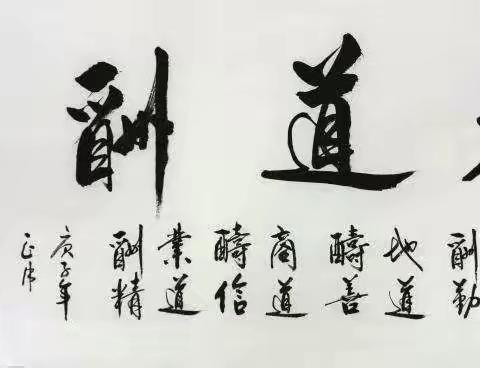 道酬
酬勤
地道
醻善
商道
醻信
業道
酬精
庚子年